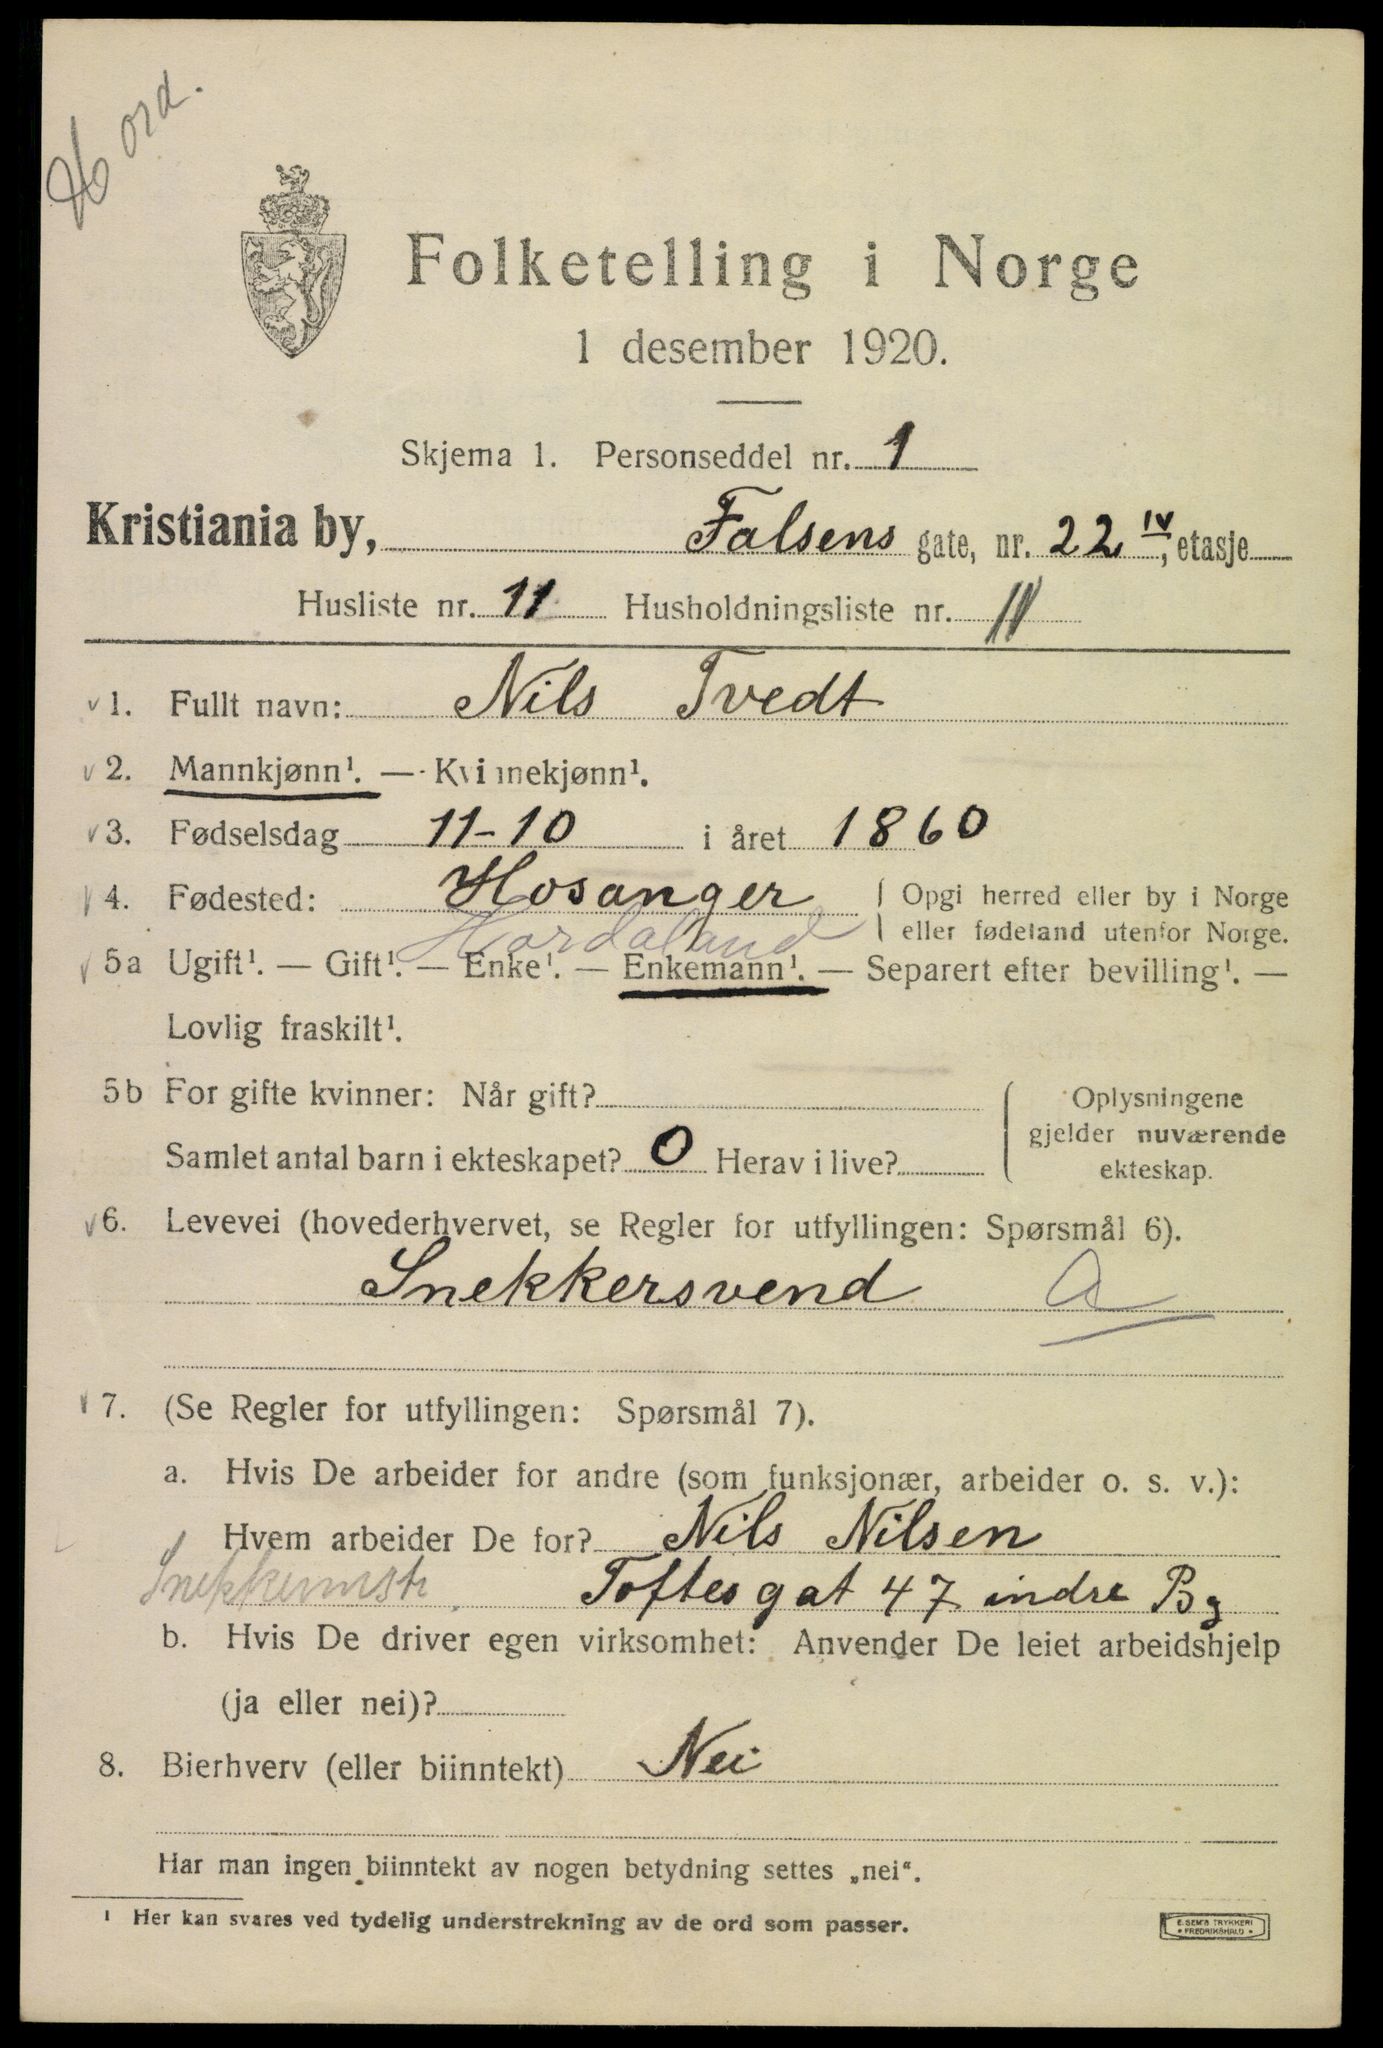 Hord.
Folketelling i Norge
1 desember 1920.
Skjema 1. Personseddel nr. 1
Kristiania by, Falsens gate, nr. 22 IV, etasje
Husliste nr. 11 Husholdningsliste nr. 11
v 1. Fullt navn: Nils Tvedt
v 2. Mannkjønn¹. — Kvinnekjønn¹.
v 3. Fødselsdag 11-10 i året 1860
v 4. Fødested: Hosanger { Opgi herred eller by i Norge
Hordaland eller fødeland utenfor Norge.
v 5a Ugift¹. — Gift¹. — Enke¹. — Enkemann¹. — Separert efter bevilling¹. —
Lovlig fraskilt¹.
5b For gifte kvinner: Når gift? { Oplysningene
gjelder nuværende
Samlet antal barn i ekteskapet? 0 Herav i live?
ekteskap.
v 6. Levevei (hovederhvervet, se Regler for utfyllingen: Spørsmål 6).
Snekkersvend A
v 7. (Se Regler for utfyllingen: Spørsmål 7).
a. Hvis De arbeider for andre (som funksjonær, arbeider o. s. v.):
Hvem arbeider De for? Nils Nilsen
Snekkermstr. Toftes gat 47 indre Bg
b. Hvis De driver egen virksomhet: Anvender De leiet arbeidshjelp
(ja eller nei)?
8. Bierhverv (eller biinntekt) Nei
Har man ingen biinntekt av nogen betydning settes „nei“.
¹ Her kan svares ved tydelig understrekning av de ord som passer.
E. SEM'S TRYKKERI
• FREDRIKSHALD •